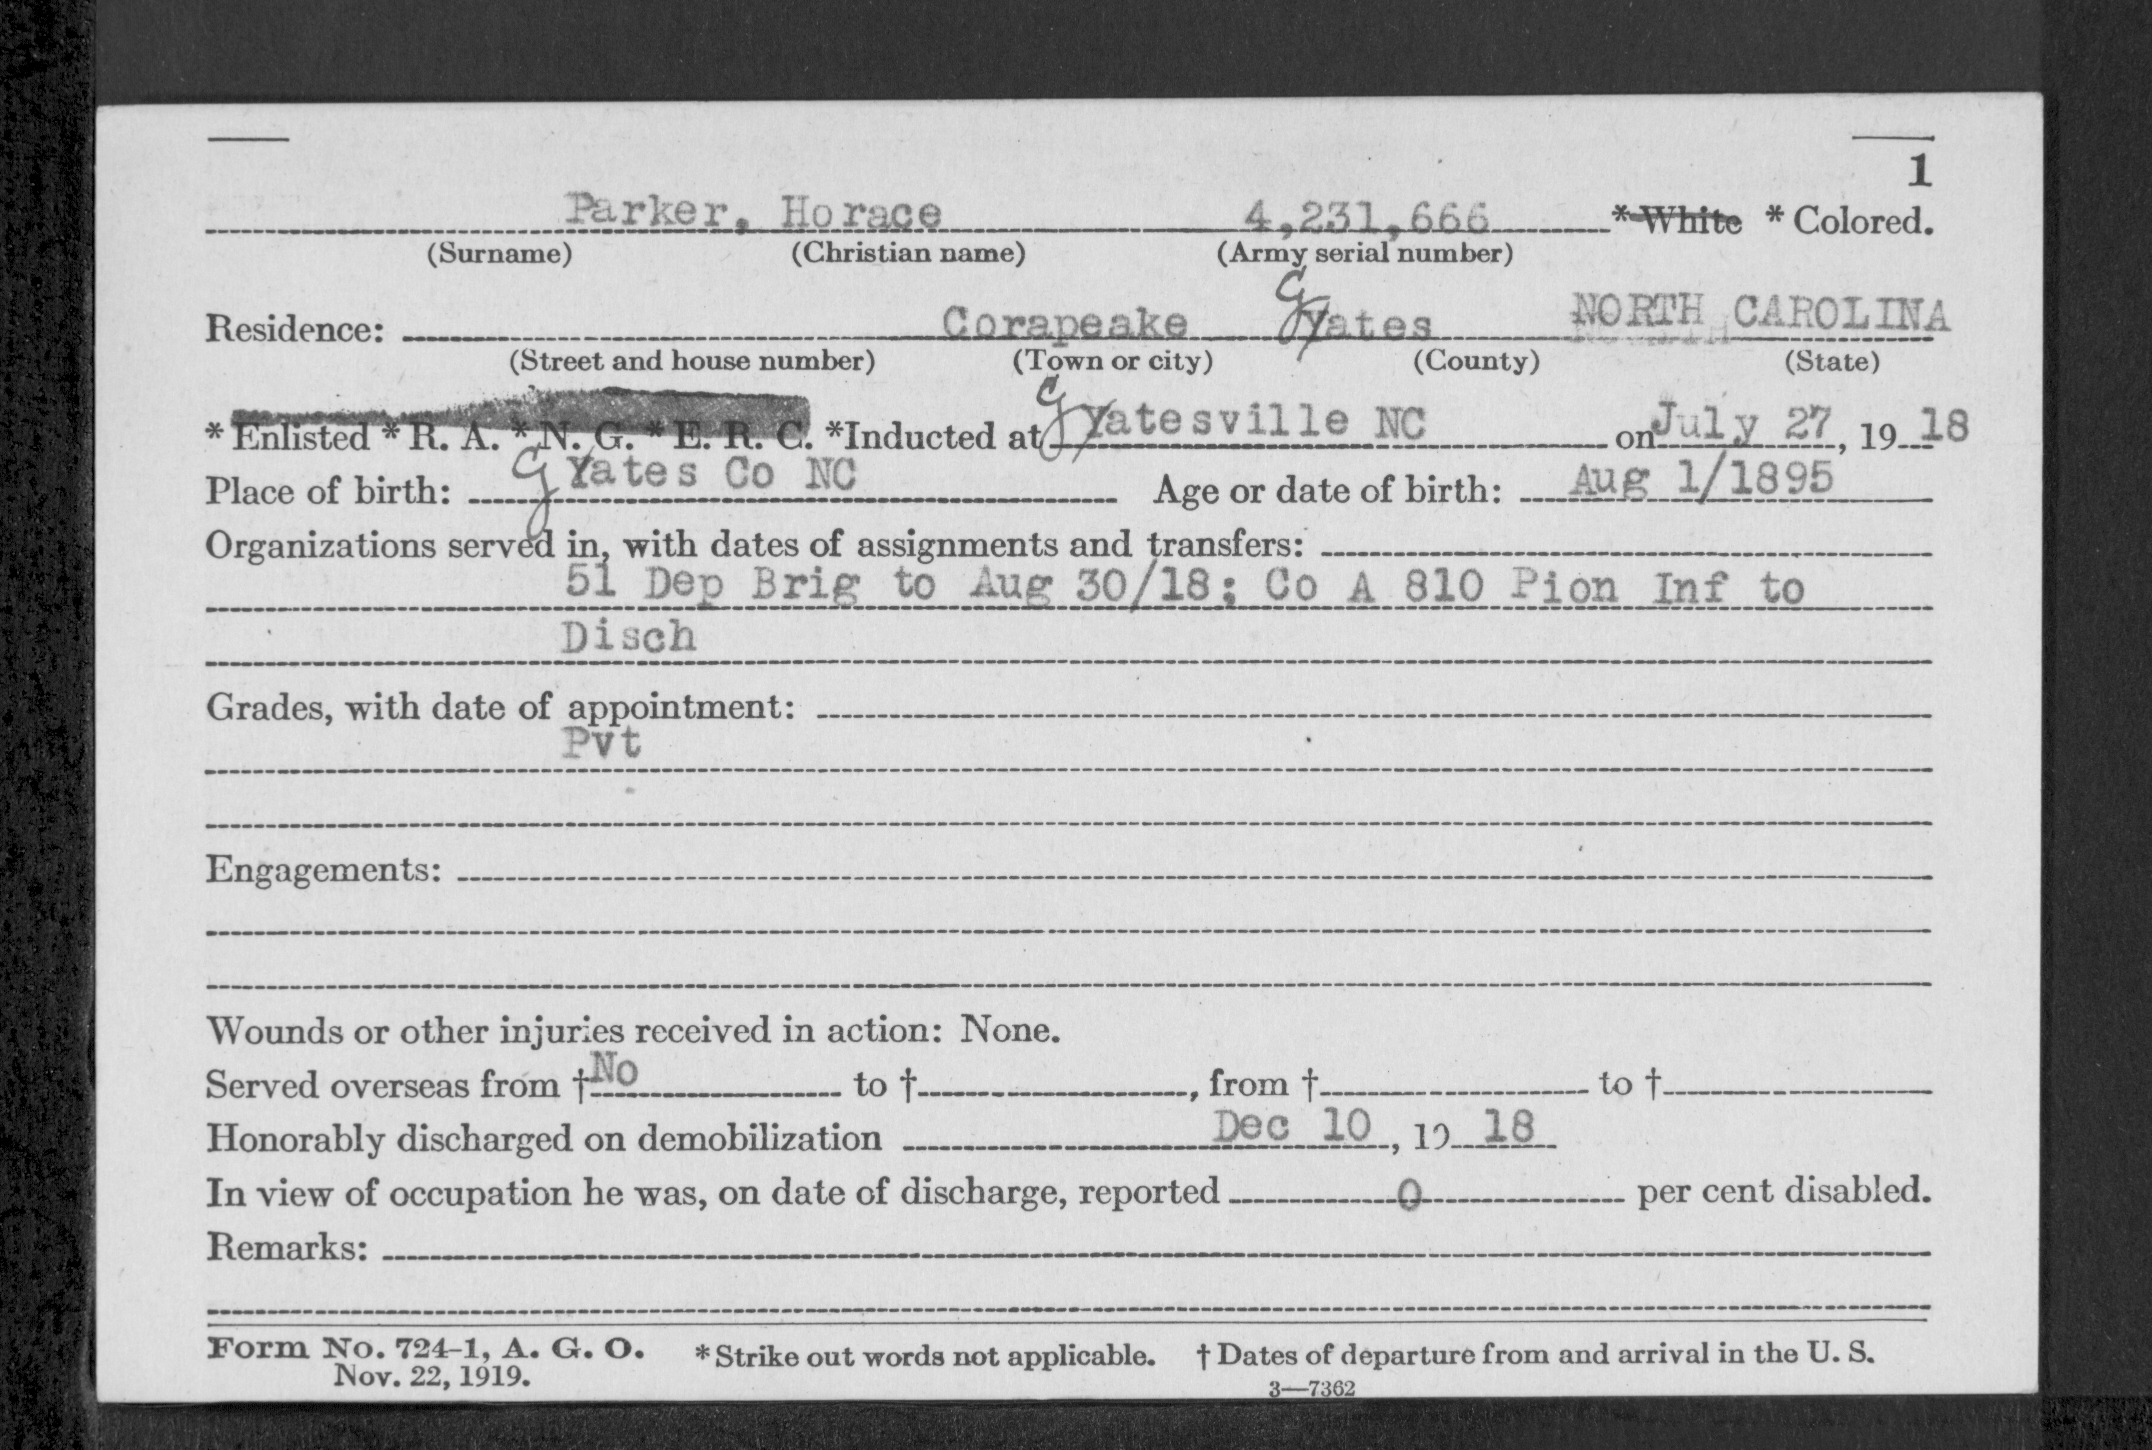 1
Parker, Horace 4,231,666 * White * Colored.
(Surname) (Christian name) (Army serial number)
Residence: Corapeake GYates NORTH CAROLINA
(Street and house number) (Town or city) (County) (State)
* Enlisted * R. A. * N. G. * E. R. C. *Inducted at GYatesville NC on July 27, 19 18
Place of birth: GYates Co NC Age or date of birth: Aug 1/1895
Organizations served in, with dates of assignments and transfers:
51 Dep Brig to Aug 30/18; Co A 810 Pion Inf to
Disch
Grades, with date of appointment:
Pvt
Engagements:
Wounds or other injuries received in action: None.
Served overseas from † No to †, from † to †
Honorably discharged on demobilization Dec 10, 19 18
In view of occupation he was, on date of discharge, reported 0 per cent disabled.
Remarks:
Form No. 724-1, A. G. O. * Strike out words not applicable. † Dates of departure from and arrival in the U. S.
Nov. 22, 1919.
3—7362